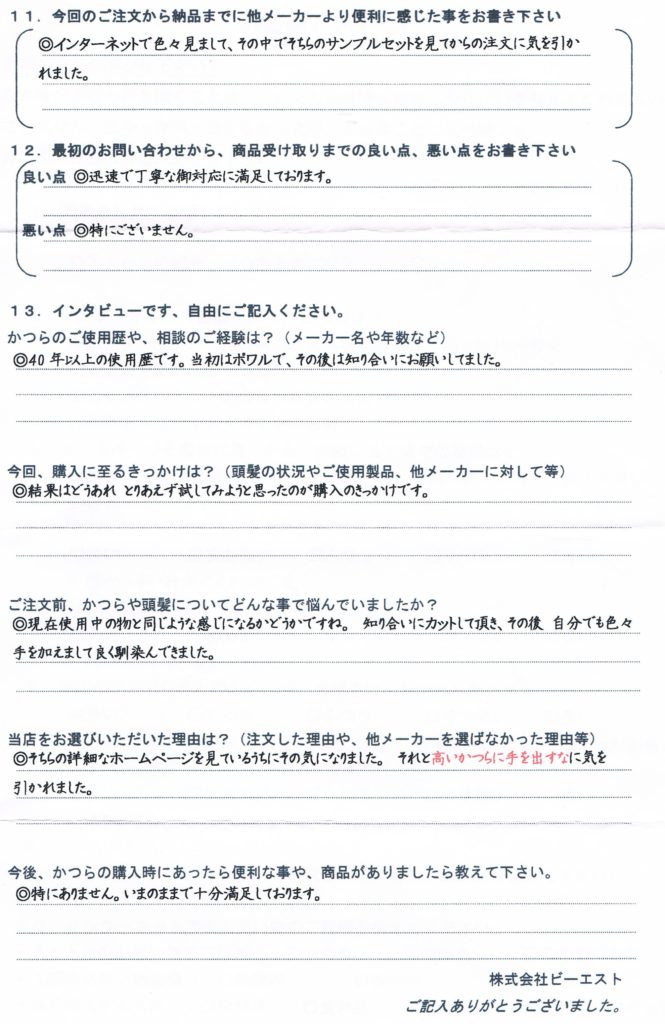 １１．今回のご注文から納品までに他メーカーより便利に感じた事をお書き下さい
◎インターネットで色々見まして、その中でそちらのサンプルセットを見てからの注文に気を引か
れました。
１２．最初のお問い合わせから、商品受け取りまでの良い点、悪い点をお書き下さい
良い点 ◎迅速で丁寧な御対応に満足しております。
悪い点 ◎特にございません。
１３．インタビューです、自由にご記入ください。
かつらのご使用歴や、相談のご経験は？（メーカー名や年数など）
◎40 年以上の使用歴です。当初はボワルで、その後は知り合いにお願いしてました。
今回、購入に至るきっかけは？（頭髪の状況やご使用製品、他メーカーに対して等）
◎結果はどうあれ とりあえず試してみようと思ったのが購入のきっかけです。
ご注文前、かつらや頭髪についてどんな事で悩んでいましたか？
◎現在使用中の物と同じような感じになるかどうかですね。 知り合いにカットして頂き、その後 自分でも色々
手を加えまして良く馴染んできました。
当店をお選びいただいた理由は？（注文した理由や、他メーカーを選ばなかった理由等）
◎そちらの詳細なホームページを見ているうちにその気になりました。 それと高いかつらに手を出すなに気を
引かれました。
今後、かつらの購入時にあったら便利な事や、商品がありましたら教えて下さい。
◎特にありません。いまのままで十分満足しております。
株式会社ビーエスト
ご記入ありがとうございました。